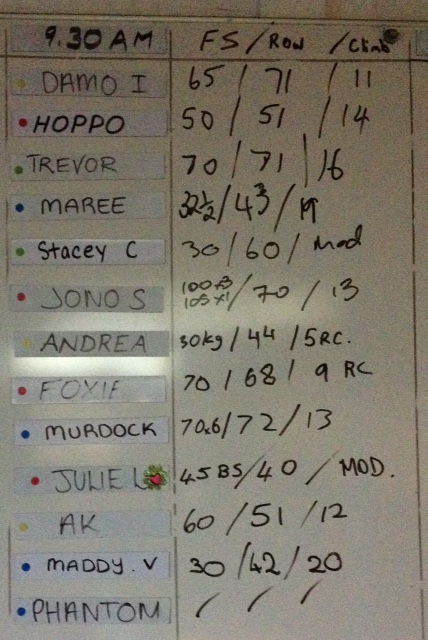 9.30 AM FS / Row / Climb
DAMO I 65 / 71 / 11
HOPPO 50 / 51 / 14
TREVOR 70 / 71 / 16
MAREE 32½ / 43 / 19
Stacey C 30 / 60 / Mod
JONO S 100x3 / 70 / 13
105x1
ANDREA 30kg / 44 / 5RC.
FOXIE 70 / 68 / 9 RC
MURDOCK 70.6 / 72 / 13
JULIE L 45 BS / 40 / MOD.
AK 60 / 51 / 12
MADDY.V 30 / 42 / 20
PHANTOM / / /